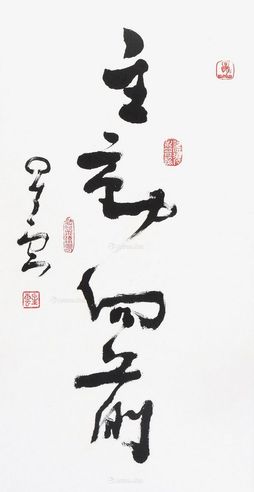 主動向前
星雲